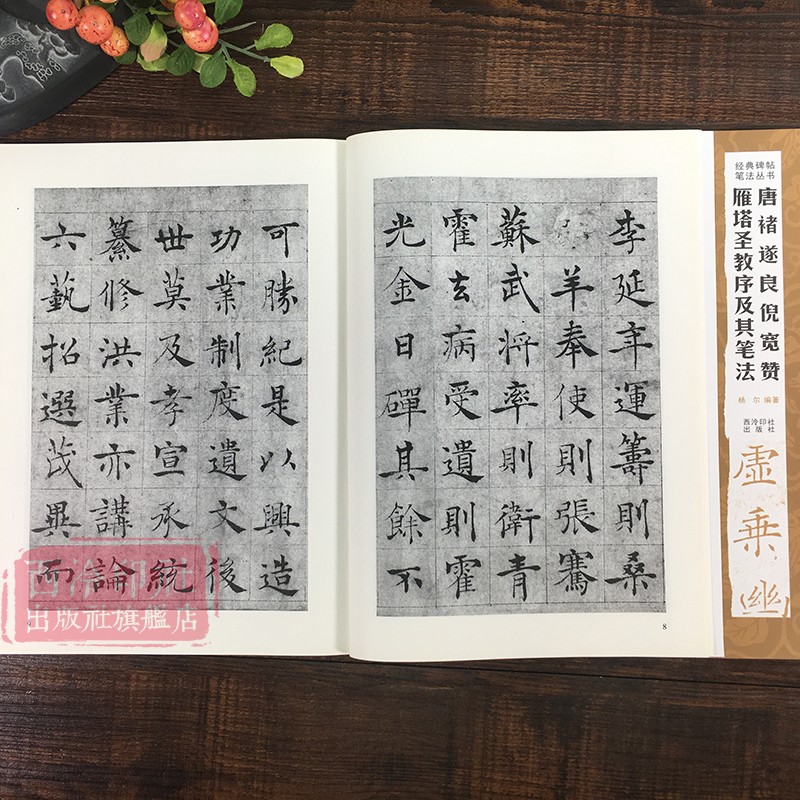 李延年運籌則桑
羊奉使則張騫
蘇武將率則衛青
霍去病受遺則霍
光金日磾其餘不
可勝紀是以興造
功業制度遺文後
世莫及孝宣承統
纂修洪業亦講論
六藝招選茂異而
8
经典碑帖
笔法丛书
唐褚遂良倪宽赞
雁塔圣教序及其笔法
杨 尔 编著
西泠印社
出版社
虚乘
西泠印社
出版社旗艦店